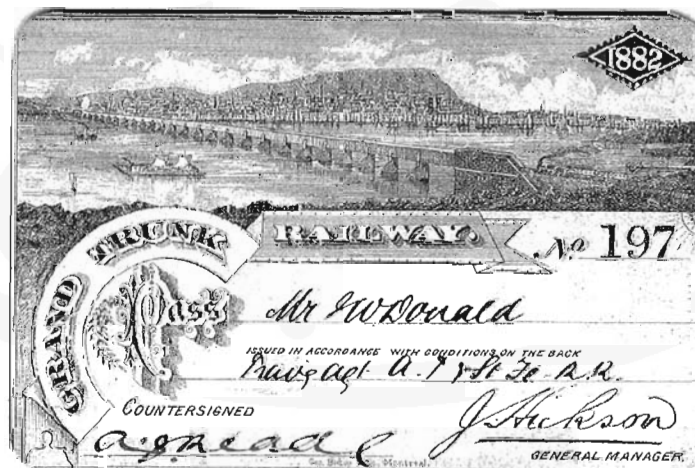 1882
GRAND TRUNK RAILWAY.
No 197
Pass Mr Donald
ISSUED IN ACCORDANCE WITH CONDITIONS ON THE BACK
agt A. T & St Fe R.R.
COUNTERSIGNED
J. Hickson
GENERAL MANAGER.
Montreal.